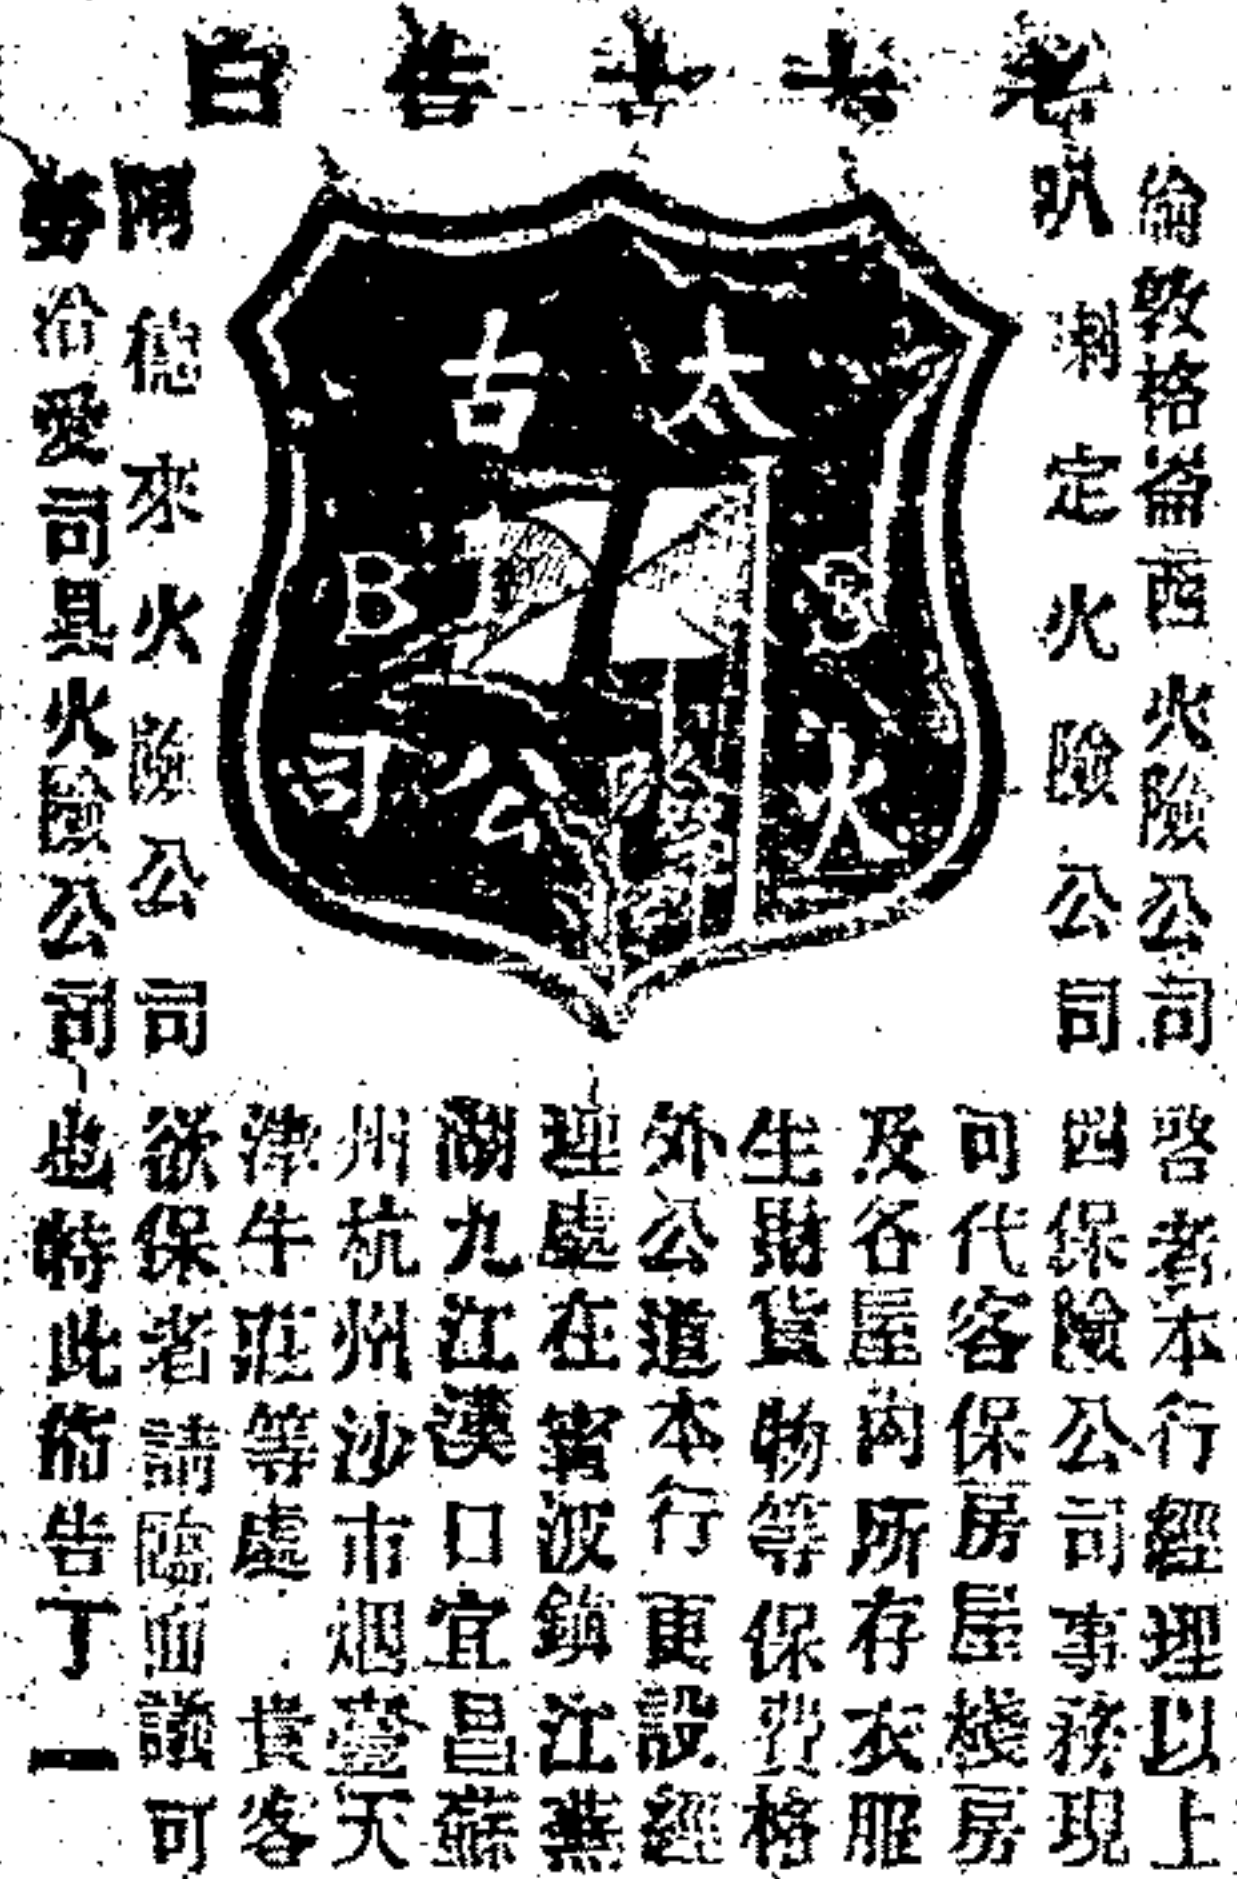 老太古告白
倫敦格崙西火險公司
叭喇定火險公司
太古
S B
火險公司
隔德來火險公司
勞洽愛司縣火險公司
啓者本行經理以上
四保險公司事務現
可代客保房屋棧房
及各屋內所存衣服
生財貨物等保費格
外公道本行更設經
理處在甯波鎮江蕪
湖九江漢口宜昌蘇
州杭州沙市烟臺天
津牛莊等處 貴客
欲保者請臨面議可
也特此佈告丁一